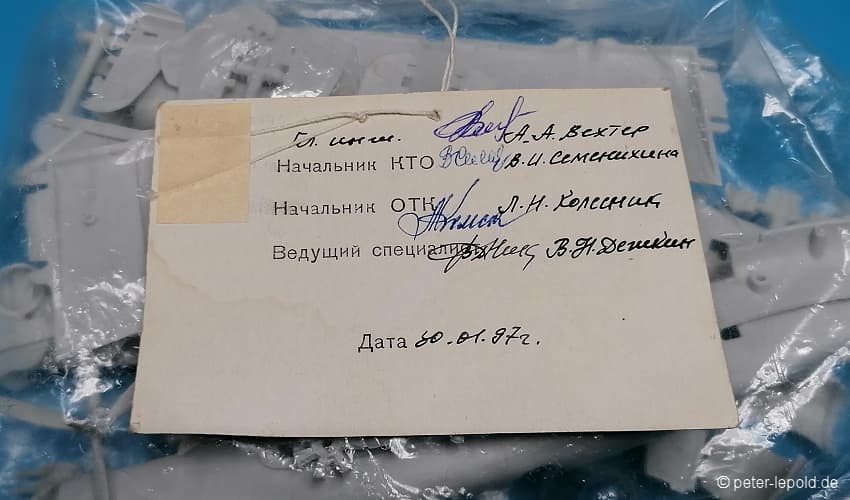 Гл. инж. А. А. Вехтер
Начальник КТО В. И. Семенихина
Начальник ОТК Л. Н. Колесник
Ведущий специалист В. Н. Дешкин
Дата 30.01.97г.
© peter-lepold.de